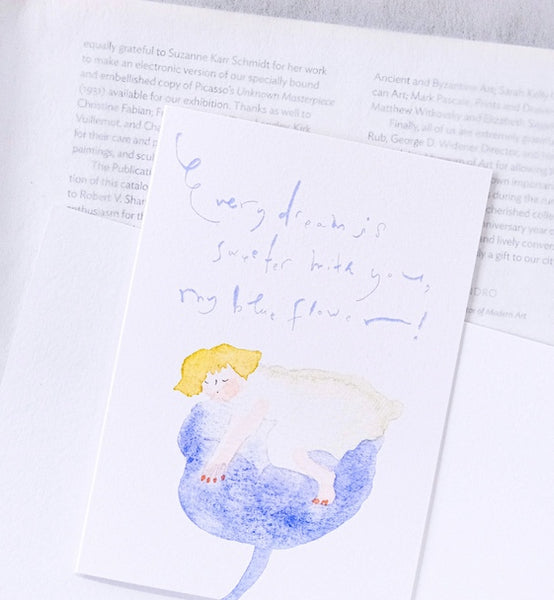 equally grateful to Suzanne Karr Schmidt for her work
to make an electronic version of our specially bound
and embellished copy of Picasso's Unknown Masterpiece
(1931) available for our exhibition. Thanks as well to
Christine Fabian, Kirk
Vuillemot, and
for their care and
paintings, and
The
tion of this
to Robert V.
enthusiasm for
Ancient and Byzantine Art; Sarah Kelly
can Art; Mark Pascale, Prints and
Matthew Witkovsky and Elizabeth
Finally, all of us are extremely
Rub, George D. Widener Director, and
of Art for allowing
own
during the
cherished
year
and lively
a gift to our
of Modern Art
Every dream is
sweeter with you,
my blue flower!